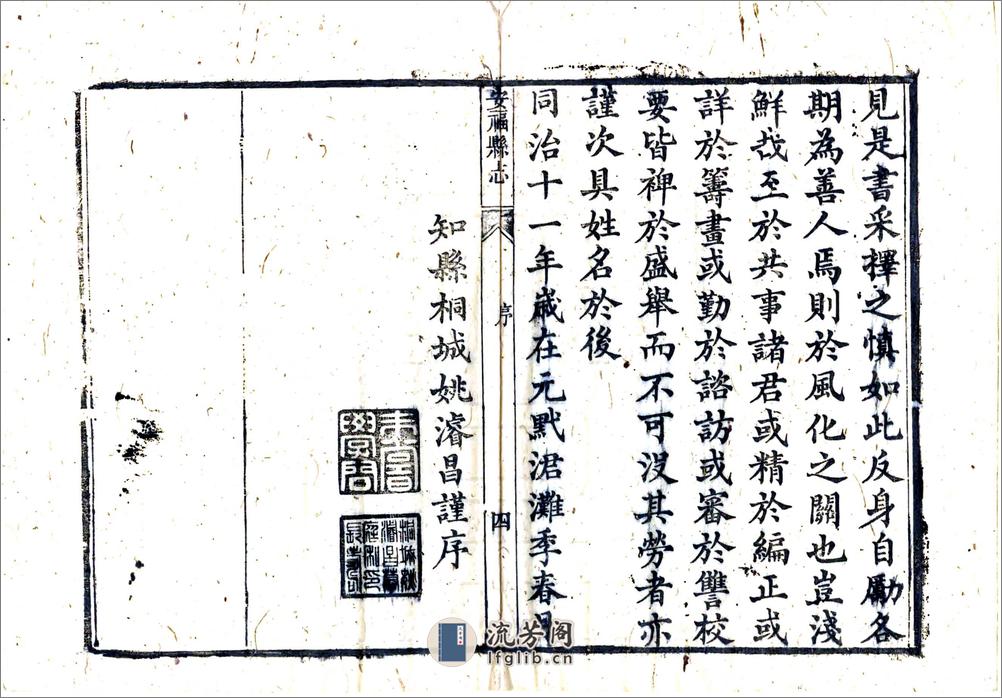 見是書采擇之慎如此反身自勵各
期為善人焉則於風化之關也豈淺
鮮哉至於共事諸君或精於編正或
詳於籌畫或勤於諮訪或審於讐校
要皆裨於盛舉而不可沒其勞者亦
謹次具姓名於後
同治十一年歲在元黓涒灘季春月
安福縣志
序
四
知縣桐城姚濬昌謹序
流芳阁
lfglib.cn